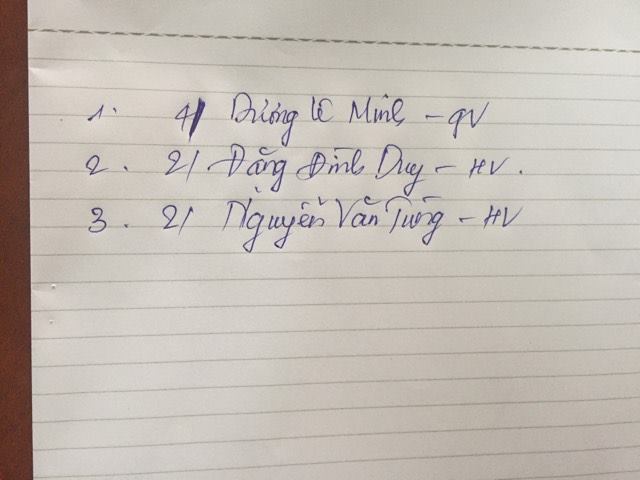 1. 4/ Dương Lê Minh - GV
2. 2/ Đặng Đình Duy - HV.
3. 2/ Nguyễn Văn Tường - HV